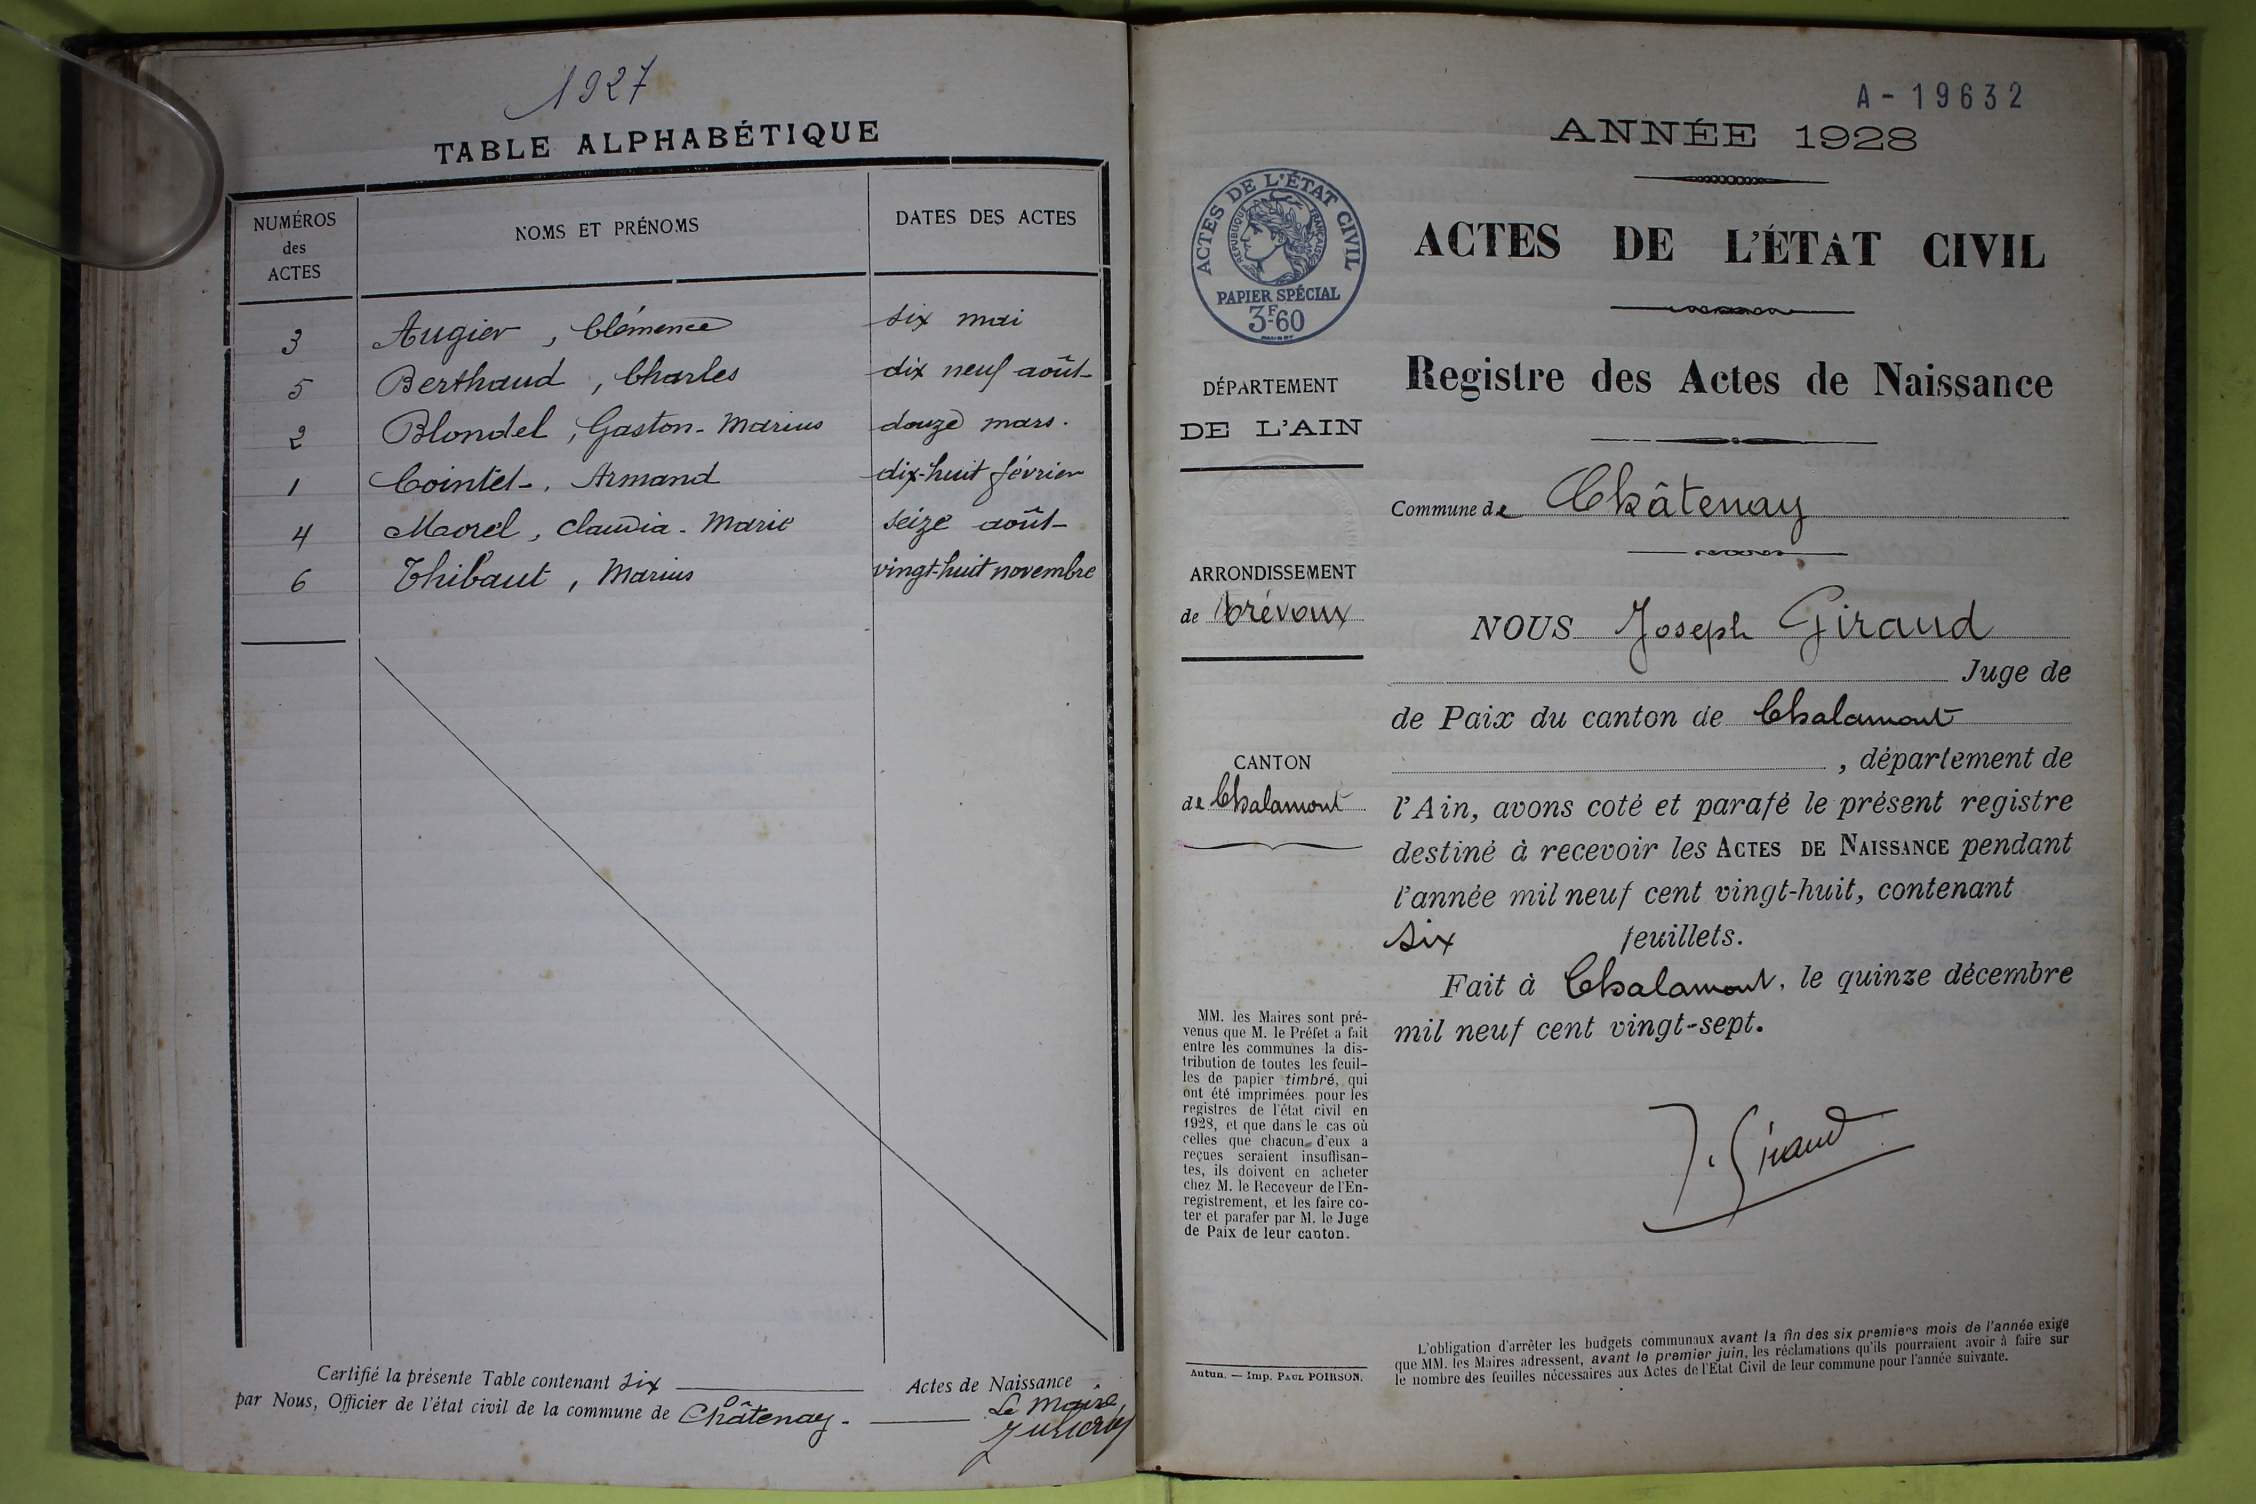 1927
TABLE ALPHABÉTIQUE
NUMÉROS
des
ACTES
NOMS ET PRÉNOMS
DATES DES ACTES
3 Augier, Clémence six mai
5 Berthaud, Charles dix neuf août
2 Blondel, Gaston-Marius douze mars.
1 Cointet, Armand dix-huit février
4 Morel, Claudia-Marie seize août
6 Thibaut, Marius vingt-huit novembre
Certifié la présente Table contenant six Actes de Naissance
par Nous, Officier de l'état civil de la commune de Châtenay.
Le Maire
A-19632
ANNÉE 1928
ACTES DE L'ÉTAT CIVIL
RÉPUBLIQUE FRANÇAISE
PAPIER SPÉCIAL
3F60
ACTES DE L'ÉTAT CIVIL
Registre des Actes de Naissance
DÉPARTEMENT
DE L'AIN
Commune de Châtenay
ARRONDISSEMENT
de Trévoux
NOUS Joseph Giraud
Juge de
de Paix du canton de Chalamont
, département de
CANTON
de Chalamont
l'Ain, avons coté et parafé le présent registre
destiné à recevoir les ACTES DE NAISSANCE pendant
l'année mil neuf cent vingt-huit, contenant
six feuillets.
Fait à Chalamont, le quinze décembre
mil neuf cent vingt-sept.
J. Giraud
MM. les Maires sont pré-
venus que M. le Préfet a fait
entre les communes la dis-
tribution de toutes les feuil-
les de papier timbré, qui
ont été imprimées pour les
registres de l'état civil en
1928, et que dans le cas où
celles que chacun d'eux a
reçues seraient insuffisan-
tes, ils doivent en acheter
chez M. le Receveur de l'En-
registrement, et les faire co-
ter et parafer par M. le Juge
de Paix de leur canton.
Autun. — Imp. PAUL POIRSON.
L'obligation d'arrêter les budgets communaux avant la fin des six premiers mois de l'année exige
que MM. les Maires adressent, avant le premier juin, les réclamations qu'ils pourraient avoir à faire sur
le nombre des feuilles nécessaires aux Actes de l'Etat Civil de leur commune pour l'année suivante.